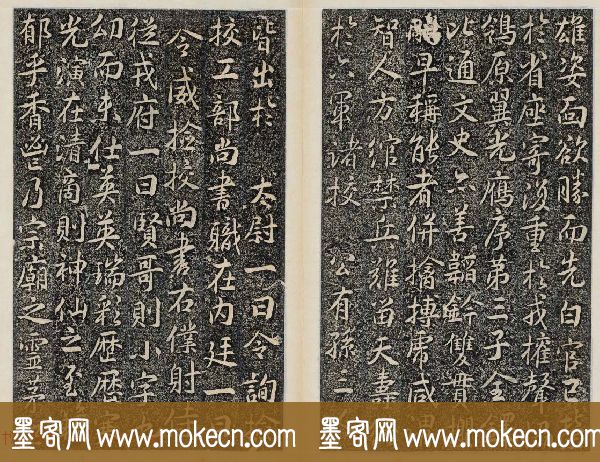 雄姿而欲勝而先白官已
於省座寄沒重於戎擁聲
鴒原翼光鴈序第三子全
比通文史亦善韜鈐雙實
早稱能者併擒搏席咸
智人方綰禁兵雄留夫壽
於六軍諸校 公有孫二
皆出於 太尉一曰令詢
校工部尚書職在內廷一曰
令威撿挍尚書右僕射
從戎府一曰賢哥則小字
幼而未仕英英瑞彩歷歷
光演在清商則神仙之
郁乎香邕乃宗廟之靈
墨客网 www.mokecn.com
墨客网 www.mokecn.com